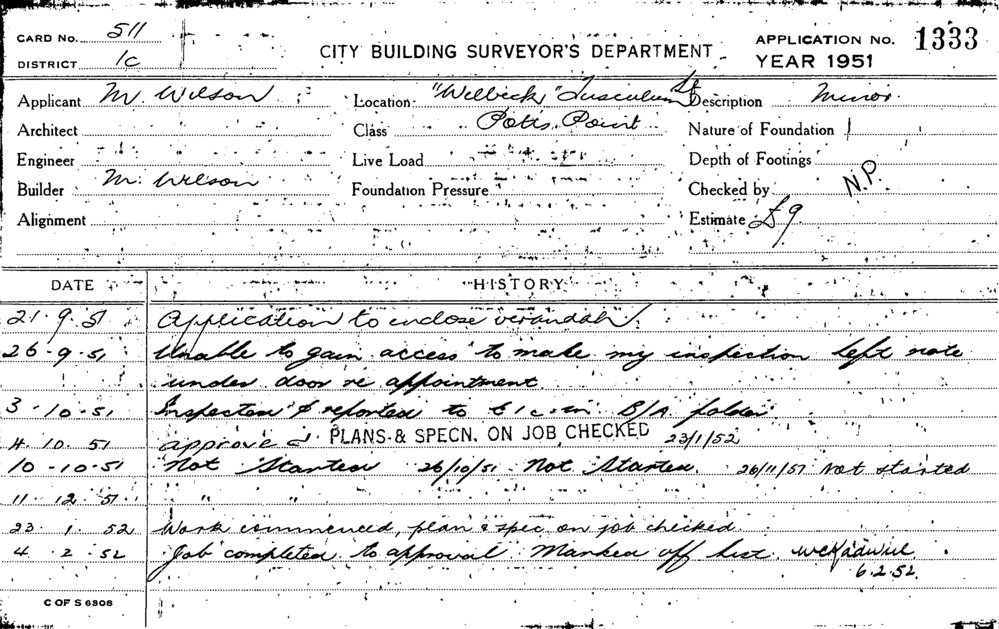 CARD No. 511
DISTRICT 1c
CITY BUILDING SURVEYOR'S DEPARTMENT
APPLICATION No. 1333
YEAR 1951
Applicant M. Wilson Location "Welbeck" Tusculum St Description Minor.
Architect Class Potts Point Nature of Foundation
Engineer Live Load Depth of Footings
Builder M. Wilson Foundation Pressure Checked by N.P.
Alignment Estimate £9
DATE HISTORY
21.9.51 Application to enclose verandah.
26.9.51 Unable to gain access to make my inspection left note
under door re appointment
3-10.51 Inspected & reported to B/A folder
4.10.51 approved. PLANS & SPECN. ON JOB CHECKED 23/1/52
10-10-51 Not Started 26/10/51 Not Started. 26/11/51 Not started
11.12.51 " "
23.1.52 Work commenced, plan & spec on job checked
4.2.52 Job completed to approval Marked off list.
6.2.52.
C OF S 6308